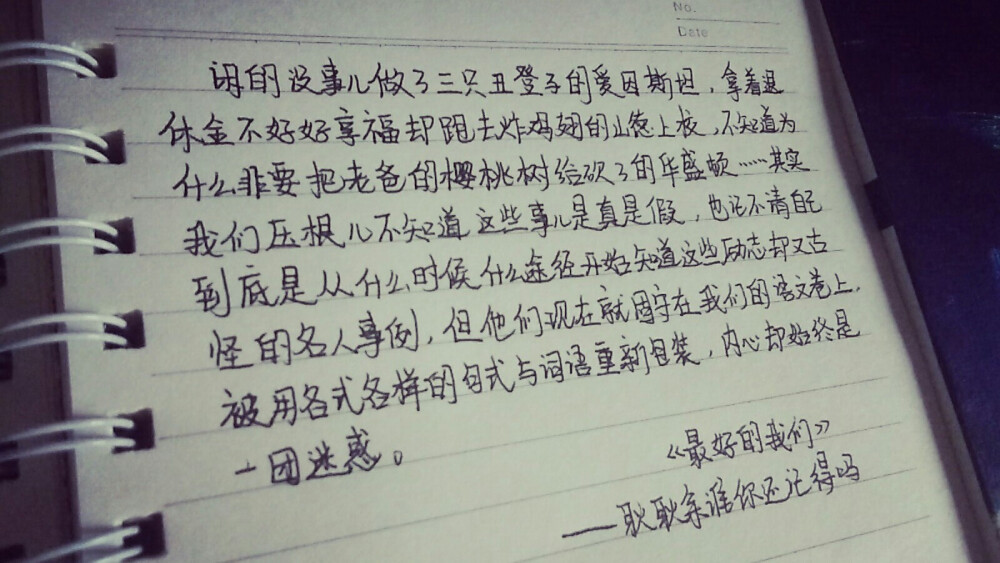 No.
Date
闲的没事儿做了三只丑凳子的爱因斯坦，拿着退
休金不好好享福却跑去炸鸡翅的山德上校，不知道为
什么非要把老爸的樱桃树给砍了的华盛顿……其实
我们压根儿不知道这些事儿是真是假，也记不清自己
到底是从什么时候什么途径开始知道这些励志却又古
怪的名人事例，但他们现在就固守在我们的语文卷上，
被用各式各样的句式与词语重新包装，内心却始终是
一团迷惑。
《最好的我们》
——耿耿余淮你还记得吗